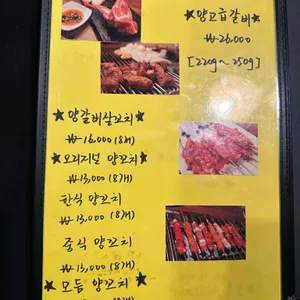 ★양고급갈비★
₩26,000
[220g~250g]
★양갈비살꼬치★
₩16,000 (8개)
★오리지널 양꼬치★
₩13,000 (8개)
한식 양꼬치
₩13,000 (8개)
중식 양꼬치
₩13,000 (8개)
★모듬 양꼬치★